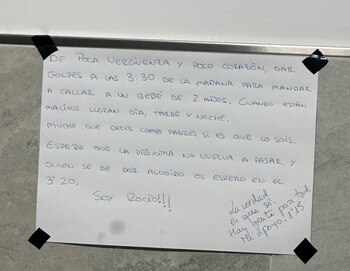 DE POCA VERGÜENZA Y POCO CORAZÓN, DAR
GOLPES A LAS 3:30 DE LA MAÑANA PARA MANDAR
A CALLAR A UN BEBÉ DE 2 AÑOS. CUANDO ESTÁN
MALITOS LLORAN DÍA, TARDE Y NOCHE.
MUCHO QUE DECIR COMO PADRES SI ES QUE LO SOIS.
ESPERO QUE LA PRÓXIMA NO VUELVA A PASAR, Y
QUIEN SE DE POR ALUDIDO OS ESPERO EN EL
3º 20.
SOY ROCIO!!!
La verdad
es que sí
Hay gente para todo
Mi apoyo. 1º15